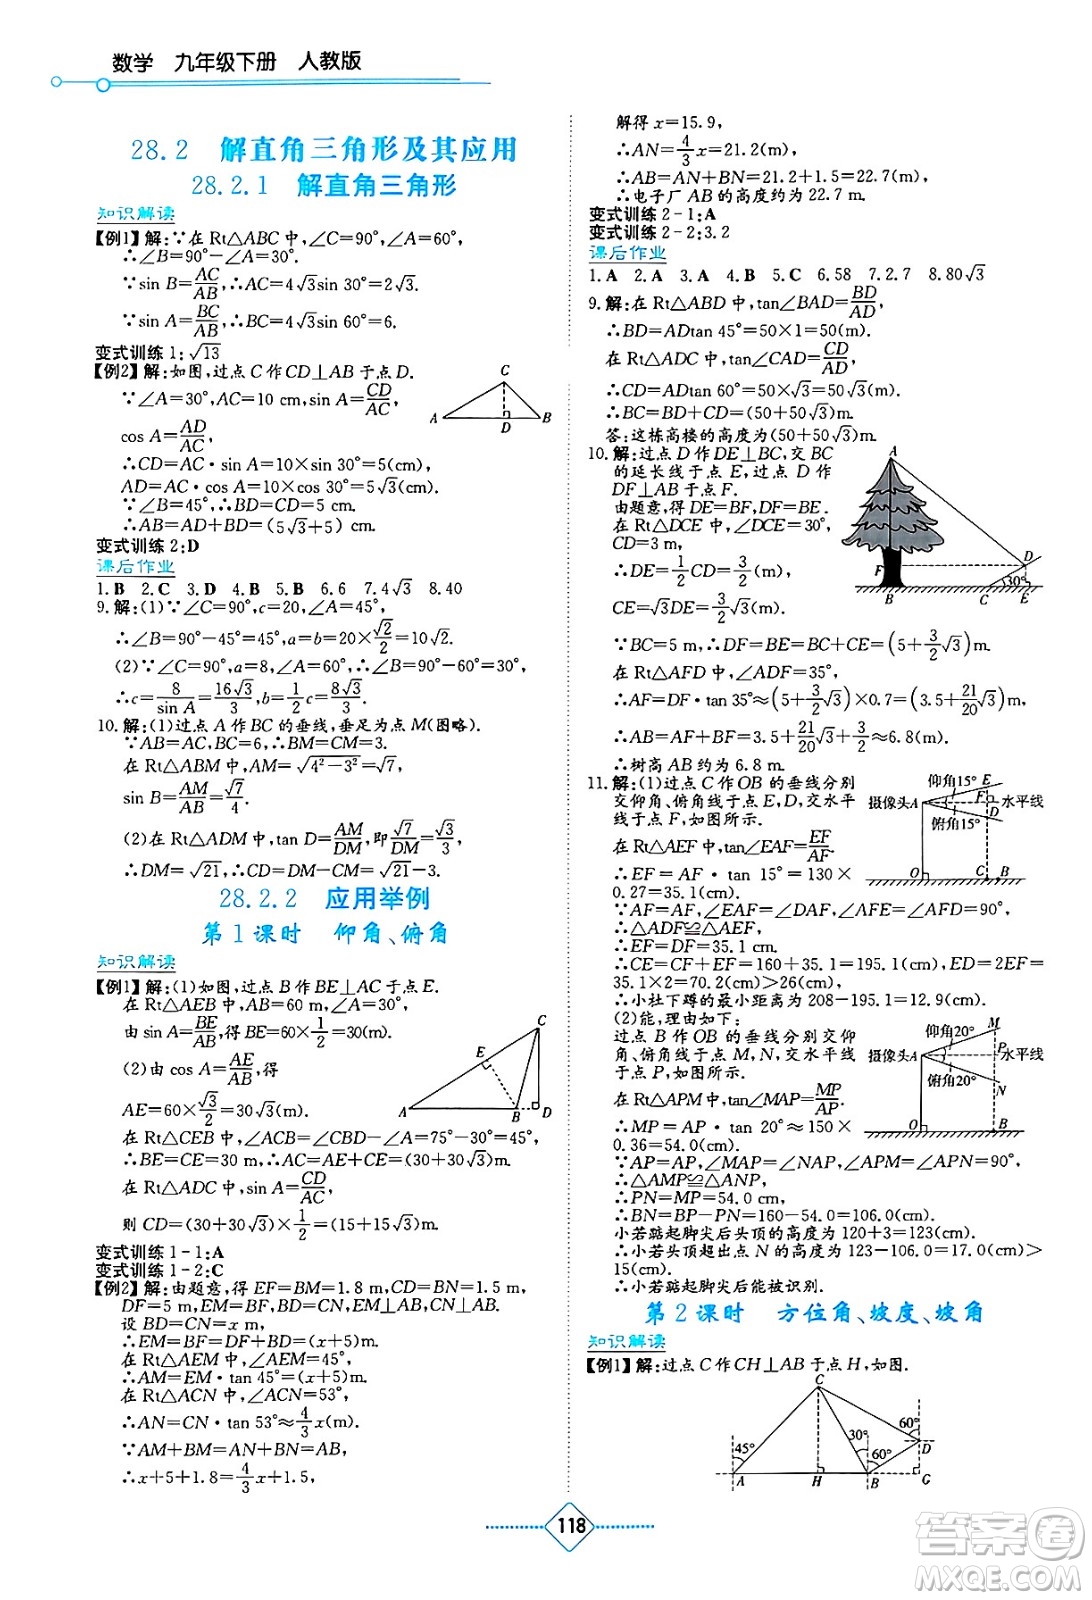 数学 九年级下册 人教版
28.2 解直角三角形及其应用
28.2.1 解直角三角形
知识解读
【例1】解:∵在 Rt△ABC 中,∠C=90°,∠A=60°,
∴∠B=90°-∠A=30°.
∵sin B=AC/AB,∴AC=4√3sin 30°=2√3.
∵sin A=BC/AB,∴BC=4√3sin 60°=6.
变式训练 1:√13
【例2】解:如图,过点 C 作 CD⊥AB 于点 D.
∵∠A=30°,AC=10 cm,sin A=CD/AC,
cos A=AD/AC,
∴CD=AC·sin A=10×sin 30°=5(cm),
AD=AC·cos A=10×cos 30°=5√3(cm).
∵∠B=45°,∴BD=CD=5 cm,
∴AB=AD+BD=(5√3+5) cm.
C
A D B
变式训练 2:D
课后作业
1.B 2.C 3.D 4.B 5.B 6.6 7.4√3 8.40
9.解:(1)∵∠C=90°,c=20,∠A=45°,
∴∠B=90°-45°=45°,a=b=20×√2/2=10√2.
(2)∵∠C=90°,a=8,∠A=60°,∴∠B=90°-60°=30°,
∴c=8/sin A=16√3/3,b=1/2c=8√3/3.
10.解:(1)过点 A 作 BC 的垂线,垂足为点 M(图略).
∵AB=AC=4,BC=6,∴BM=CM=3.
在 Rt△ABM 中,AM=√(4²-3²)=√7,
∴sin B=AM/AB=√7/4.
(2)在 Rt△ADM 中,tan D=AM/DM,即√7/DM=√3/3,
∴DM=√21,∴CD=DM-CM=√21-3.
28.2.2 应用举例
第 1 课时 仰角、俯角
知识解读
【例1】解:(1)如图,过点 B 作 BE⊥AC 于点 E.
在 Rt△AEB 中,∠A=30°,AB=60 m,
由 sin A=BE/AB,得 BE=60×1/2=30(m).
(2)由 cos A=AE/AB,得
AE=60×√3/2=30√3(m).
在 Rt△CEB 中,∠ACB=∠CBD-∠A=75°-30°=45°,
∴BE=CE=30 m,∴AC=AE+CE=(30+30√3)m.
在 Rt△ADC 中,sin A=CD/AC,
则 CD=(30+30√3)×1/2=(15+15√3)m.
C
E
A B D
变式训练 1-1:A
变式训练 1-2:C
【例2】解:由题意,得 EF=BM=1.8 m,CD=BN=1.5 m,
DF=5 m,EM=BF,BD=CN.
设 BD=CN=x m,
∴EM=BF=DF+BD=(x+5)m.
在 Rt△AEM 中,∵∠AEM=45°,
∴AM=EM=(x+5)m.
在 Rt△ACN 中,∵∠ACN=53°,
∴AN=CN·tan 53°≈4/3x(m).
∵AM+BM=AN+BN=AB,
∴x+5+1.8=4/3x+1.5,
解得 x=15.9,
∴AN=4/3x=21.2(m),
∴AB=AN+BN=21.2+1.5=22.7(m).
∴电子厂 AB 的高度约为 22.7 m.
变式训练 2-1:A
变式训练 2-2:3.2
课后作业
1.A 2.A 3.A 4.B 5.C 6.58 7.2.7 8.80√3
9.解:在 Rt△ABD 中,tan∠BAD=BD/AD,
∴BD=ADtan 45°=50×1=50(m).
在 Rt△ADC 中,tan∠CAD=CD/AD,
∴CD=ADtan 60°=50×√3=50√3(m).
∴BC=BD+CD=(50+50√3)m.
答:这栋高楼的高度为(50+50√3)m.
10.解:过点 D 作 DE⊥BC,交 BC
的延长线于点 E,过点 D 作
DF⊥AB 于点 F.
由题意,得 DE=BF,DF=BE.
在 Rt△DCE 中,∠DCE=30°,
CD=3 m,
∴DE=1/2CD=3/2(m),
CE=√3DE=3/2√3(m).
∵BC=5 m,∴DF=BE=BC+CE=(5+3/2√3)m.
在 Rt△AFD 中,∠ADF=35°,
∴AF=DF·tan 35°≈(5+3/2√3)×0.7=(3.5+21/20√3)m,
∴AB=AF+BF=3.5+21/20√3+3/2≈6.8(m).
∴树高 AB 约为 6.8 m.
A
F D
30°
B C E
11.解:(1)过点 C 作 OB 的垂线分别
交仰角、俯角线于点 E,D,交水平
线于点 F,如图所示.
在 Rt△AEF 中,tan∠EAF=EF/AF,
∴EF=AF·tan 15°=130×
0.27=35.1(cm).
∵AF=AF,∠EAF=∠DAF,∠AFE=∠AFD=90°,
∴△ADF≌△AEF,
∴EF=DF=35.1 cm,
∴CE=CF+EF=160+35.1=195.1(cm),ED=2EF=
35.1×2=70.2(cm)>26(cm),
∴小杜下蹲的最小距离为 208-195.1=12.9(cm).
仰角15° E
摄像头A F 水平线
D
俯角15°
O C B
(2)能,理由如下:
过点 B 作 OB 的垂线分别交仰
角、俯角线于点 M,N,交水平线
于点 P,如图所示.
在 Rt△APM 中,tan∠MAP=MP/AP,
∴MP=AP·tan 20°=150×
0.36=54.0(cm).
∵AP=AP,∠MAP=∠NAP,∠APM=∠APN=90°,
∴△AMP≌△ANP,
∴PN=MP=54.0 cm,
∴BN=BP-PN=160-54.0=106.0(cm).
小若踮起脚尖后头顶的高度为 120+3=123(cm).
∴小若头顶超出点 N 的高度为 123-106.0=17.0(cm)>
15(cm).
∴小若踮起脚尖后能被识别.
仰角20° M
摄像头A P 水平线
俯角20° N
O B
第 2 课时 方位角、坡度、坡角
知识解读
【例1】解:过点 C 作 CH⊥AB 于点 H,如图.
C
60°
45° 30° 60° D
A H B G
118
答案圈
MXQE.COM